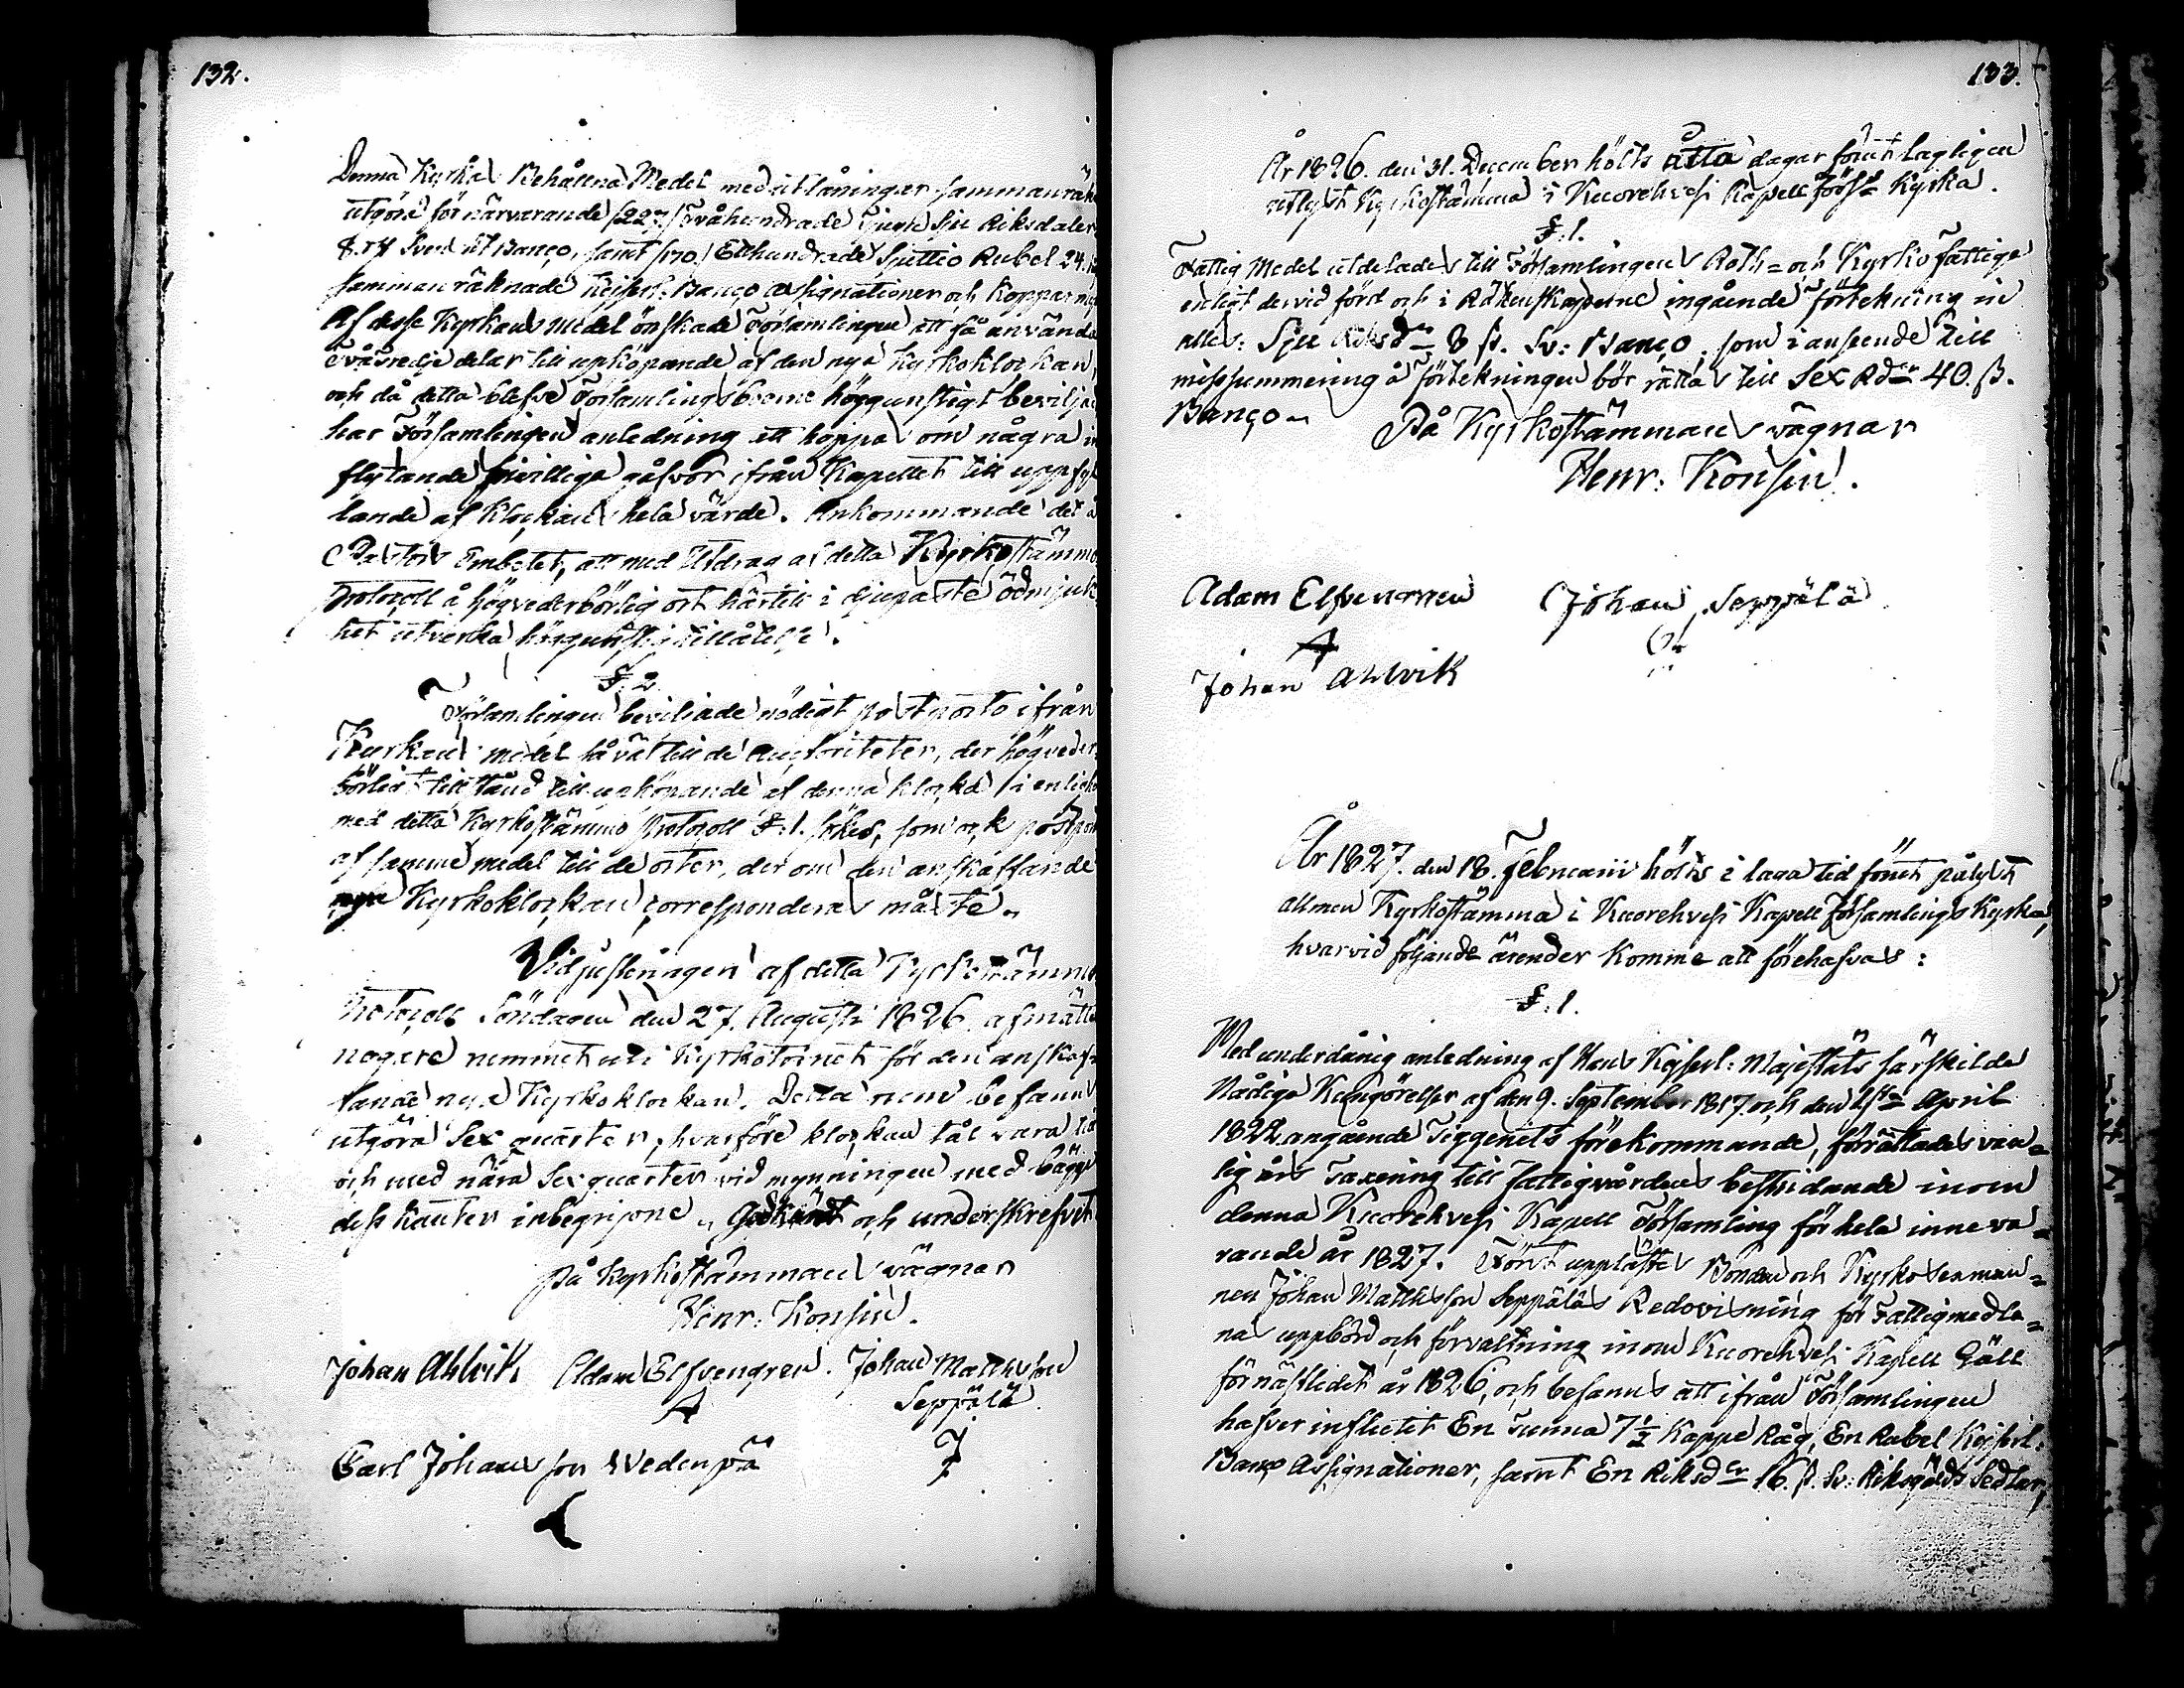 132.
Denna Kyrkas Behållna Medel med utlåningar sammanräk
utgöra för närvarande /:227:/ Tvåhundrade Tjugu Sju Riksdaler
8. rst Svenskt Banco, samt /:170:/ Etthundrade Sjuttio Rubel 24.
samman räknade Kejserl: Banco assignationer och Kopparmy
Af desse Kyrkans medel önskade Församlingen att få använda
Tvåtredje delar till upköpande af den nya Kyrkoklockan,
och då detta blefve Församlingsboerne höggunstigt beviljad
har Församlingen anledning att hoppas om några in
flytande frivilliga gåfvor ifrån Kapellet till uppfyl
lande af Klockans hela värde. Ankommande det å
Pastors Embetet, att med Utdrag af detta Kyrkostämmo
Protocoll å högvederbörlig ort härtill i djupaste ödmjuk
het utverka höggunstig tillåtelse.
§. 2.
Församlingen beviljade nödigt postporto ifrån
Kyrkans medel såväl till de Auctoriteter, der högveder
börligt tillstånd till upköpande af denna klocka i enlighe
med detta Kyrkostämmo Protocoll §. 1. sökes, som ock postpor
af samma medel till de orter, der om den anskaffande
nya Kyrkoklockan corresponderas måste.
Vid justeringen af detta Kyrkostämmo
Protocoll Söndagen den 27. Augusti 1826. afmätte
nogare rummet uti Kyrkotornet för den anskaf
fande nya Kyrkoklockan. Detta rum befanns
utgöra Sex quarter, hvarföre klockan tål vara
och med nära Sex quarter vid mynningen med bägge
dess kanter inbegripne. Godkändt och underskrefvet
på Kyrkostämmans vägnar
Henr: Konsin.
Johan Ahlvik Adam Elfvengren. Johan Mattsson
Seppälä.
Carl Johansson Wedenpä
133.
År 1826. den 31. December hölts åtta dagar förut lagligen
utlyst Kyrkostämma i Kuorehvesi Kapell Förs:s Kyrka.
§. 1.
Fattig Medel utdelades till Församlingens Roth= och Kyrko Fattige
enligt dervid förd och i Räkenskaperne ingående Förtekning in
alles: Sju Riksd:r 8 ß. Sv: Banco, som i anseende till
missummering å Förtekningen bör rättas till Sex Rd:r 40. ß.
Banco. På Kyrkostämmans vägnar
Henr: Konsin.
Adam Elfvengren Johan Seppälä
Johan Ahlvik
År 1827. den 18. Februarii hölts i laga tid förut pålyst
allmen Kyrkostämma i Kuorehvesi Kapell Församlings Kyrka,
hvarvid följande ärender komme att förehafvas:
§. 1.
Med underdånig anledning af Hans Kejserl: Majestäts särskilde
Nådiga Kungörelser af den 9. September 1817 och den April
1822 angående Tiggeriets förekommande, förrättades van=
lig års Taxering till Fattigvårdens bestridande inom
denna Kuorehvesi Kapell Församling för hela inneva=
rande år 1827. Först upplästes Bonden och Kyrko Sexman=
nen Johan Mattsson Seppäläs Redovisning för Fattigmedla=
nas uppbörd och förvaltning inom Kuorehvesi Kapell Gäll
förnästledit år 1826, och befanns att ifrån Församlingen
hafver influtit En Tunna 7 1/2 Kappe Råg, En Rubel Kejserl:
Banco Assignationer, samt En Riksd:r 16. ß. Sv: Riksgälds Sedlar,